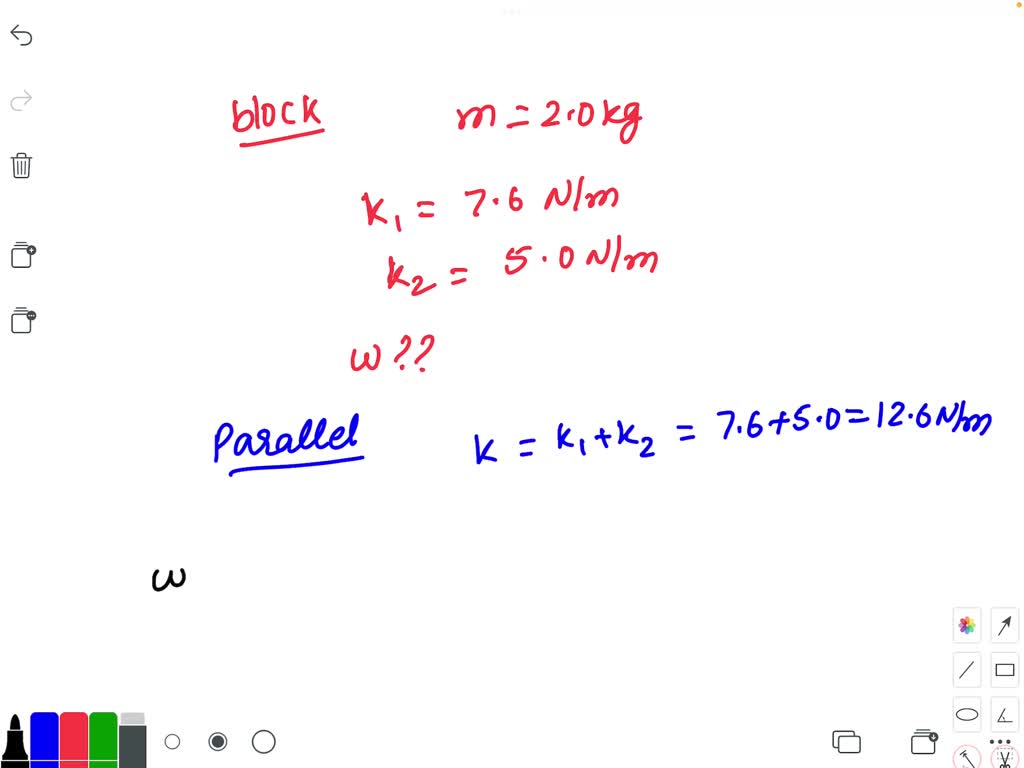 block m = 2.0 kg
k₁ = 7.6 N/m
k₂ = 5.0 N/m
ω??
Parallel k = k₁+k₂ = 7.6+5.0=12.6N/m
ω